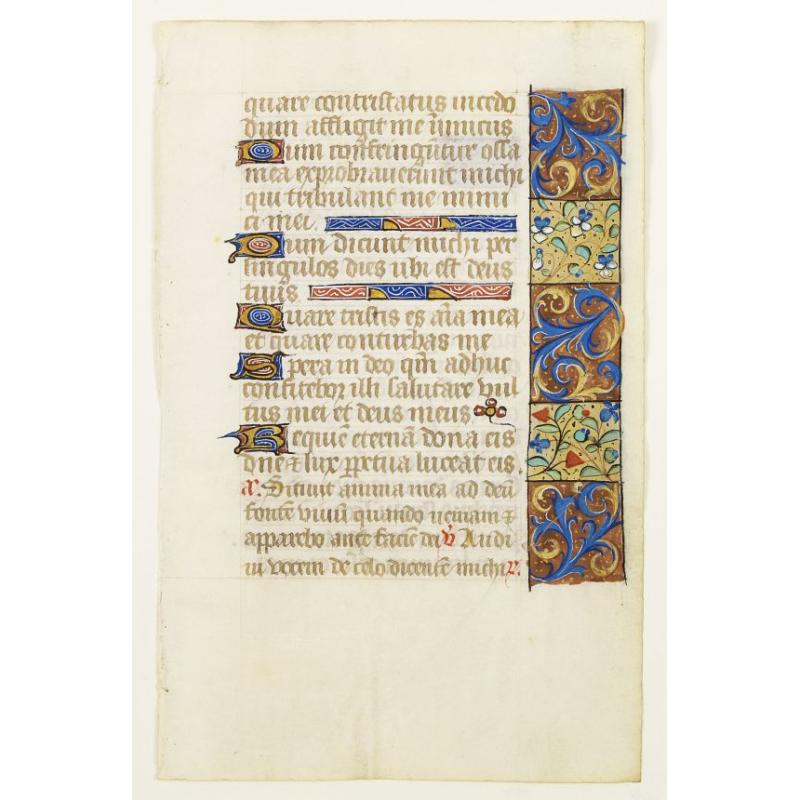 quare contristatus incedo
dum affligit me inimicus
Dum confringutur ossa
mea exprobrauerunt michi
qui tribulant me inimi
ci mei.
Dum dicunt michi per
singulos dies ubi est deus
tuus
Quare tristis es aīa mea
et quare conturbas me
Spera in deo qm̄ adhuc
confitebor illi salutare vul
tus mei et deus meus
Requiē eternā dona eis
dn̄e ⁊ lux ꝑpetua luceat eis
a. Sitiuit anima mea ad deū
fontē viuū quando veniam ⁊
apparebo ante faciē dei ℣ Audi
ui vocem de celo dicentē michi ℟.